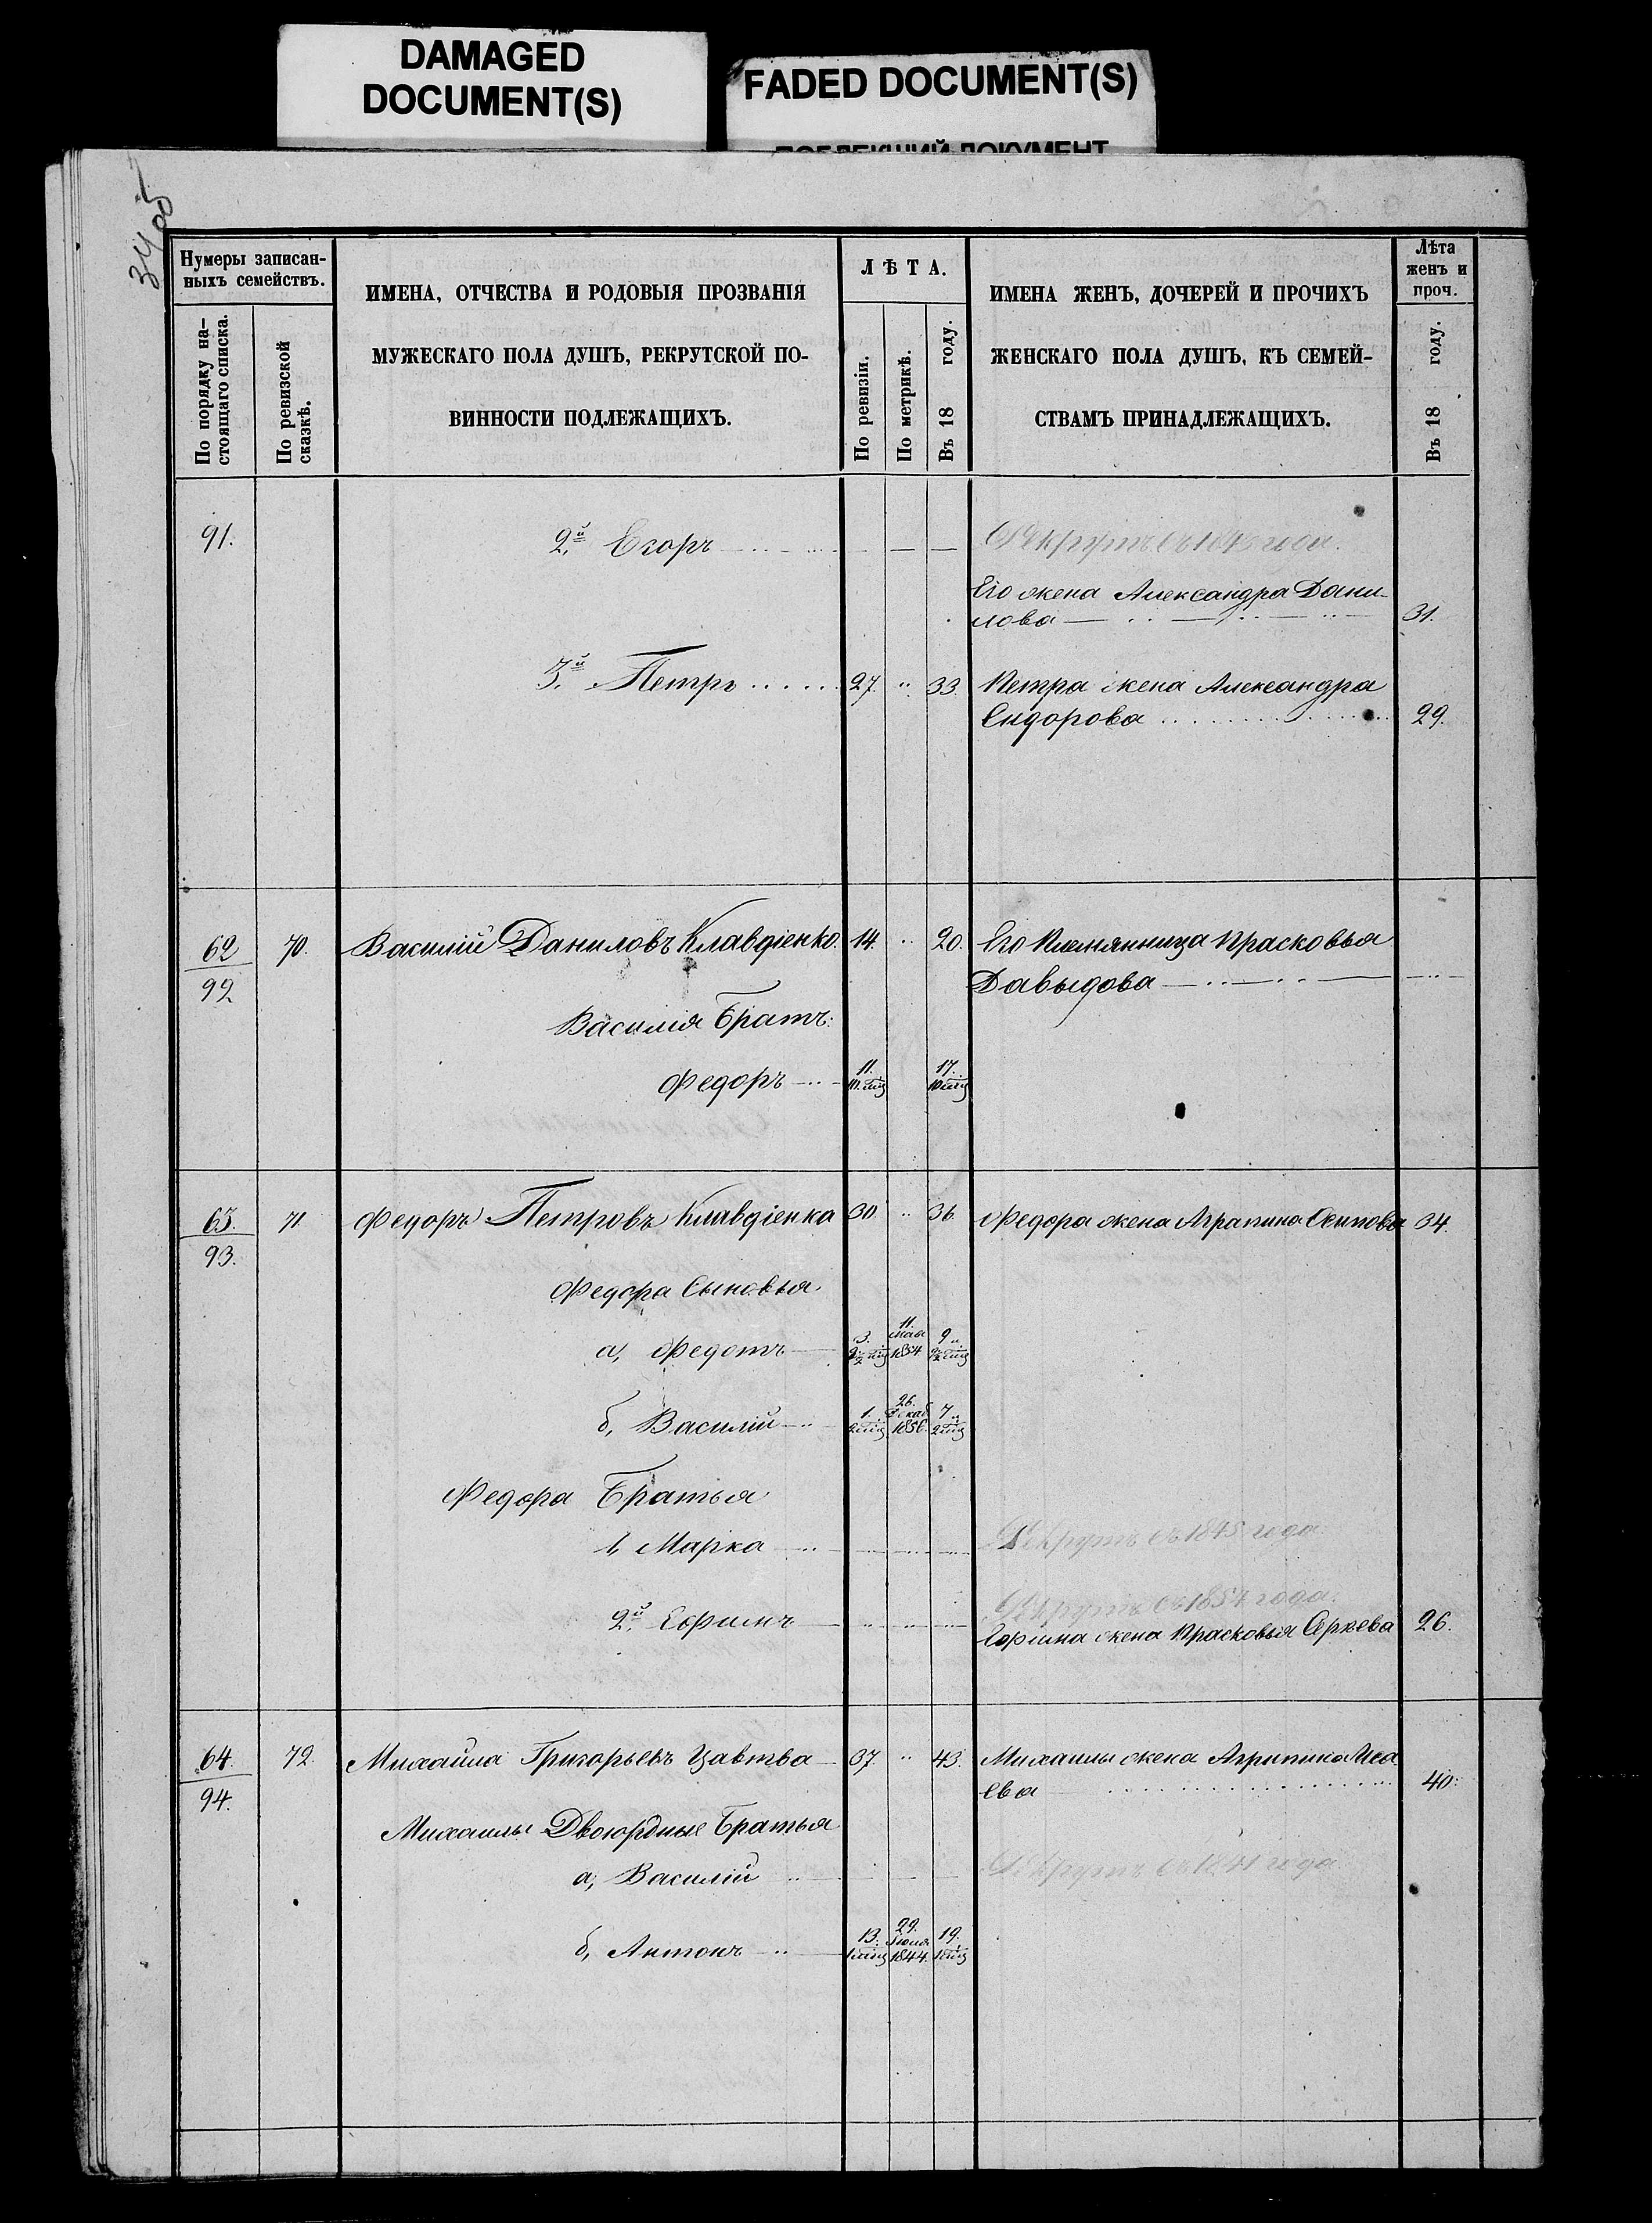 DAMAGED
DOCUMENT(S)
FADED DOCUMENT(S)
ПОБЛЕКШИЙ ДОКУМЕНТ
Нумеры записан-
ныхъ семействъ.
По порядку на-
стоящаго списка.
По ревизской
сказкѣ.
ИМЕНА, ОТЧЕСТВА И РОДОВЫЯ ПРОЗВАНІЯ
МУЖЕСКАГО ПОЛА ДУШЪ, РЕКРУТСКОЙ ПО-
ВИННОСТИ ПОДЛЕЖАЩИХЪ.
ЛѢТА.
По ревизіи.
По метрикѣ.
Въ 18 году.
ИМЕНА ЖЕНЪ, ДОЧЕРЕЙ И ПРОЧИХЪ
ЖЕНСКАГО ПОЛА ДУШЪ, КЪ СЕМЕЙ-
СТВАМЪ ПРИНАДЛЕЖАЩИХЪ.
Лѣта
женъ и
проч.
Въ 18 году.
91. 2й Егоръ Рекрутъ съ года.
Его жена Александра Дани-
лова 31.
3й Петръ 27. 33. Петра жена Александра
Сидорова 29.
62 70. Василій Даниловъ Клавдіенко. 14. 20. Его Племянница Прасковья
92 Давыдова
Василія Братъ:
Федоръ 11. 11. мѣц 17. 10 мѣц
63. 71. Федоръ Петровъ Клавдіенка 30. 36. Федора жена Аграпина Осипова 34.
93.
Федора Сыновья.
а, Федотъ 3. 11. Мая 1854 9
б, Василій 1. 2 мѣц 26. Декаб 1856. 7 2 мѣц
Федора Братья
1, Марка Рекрутъ съ 1845 года
2й Ефимъ Рекрутъ съ 1854 года.
Ефима жена Прасковья Сергѣева 26.
64. 72. Михайла Григорьевъ Цавтва 37. 43. Михаилы жена Агрипина Иса
94. ева 40.
Михаилы Двоюрдные Братья
а, Василій Рекрутъ съ 1841 года
б, Антонъ 13. 1 мѣц 29. Іюня 1844. 19.